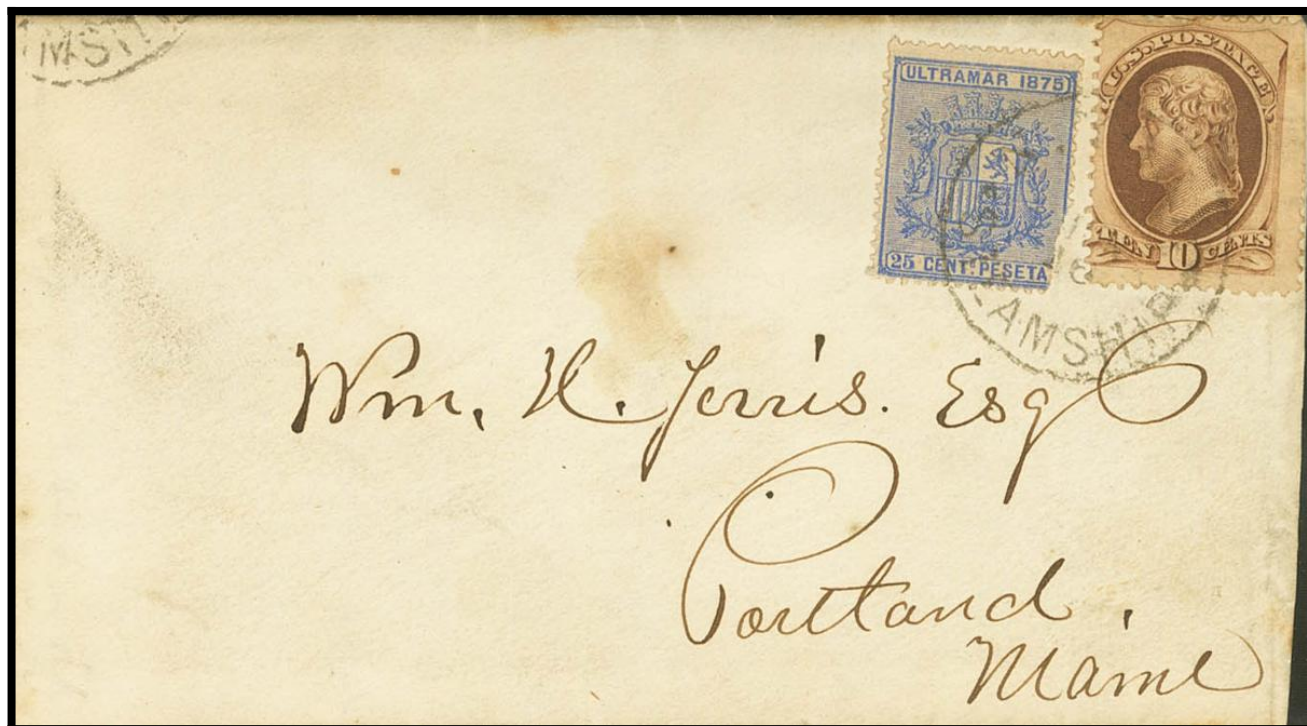 MSHI
ULTRAMAR 1875
25 CENTS PESETA
U.S. POSTAGE
TEN 10 CENTS
AMSHIP
Wm. H. Jerris. Esq
Portland,
Maine